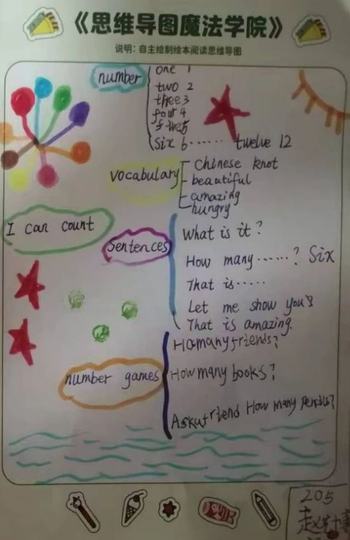 《思维导图魔法学院》
说明：自主绘制绘本阅读思维导图
number
one 1
two 2
three 3
four 4
five 5
Six 6 ...... twelve 12
vocabulary
Chinese knot
beautiful
amazing
hungry
I can count
Sentences
What is it?
How many ......? Six
That is ......
Let me show you!
That is amazing.
number games
Homanyfriends?
How many books?
Askafriend How many pencils?
205